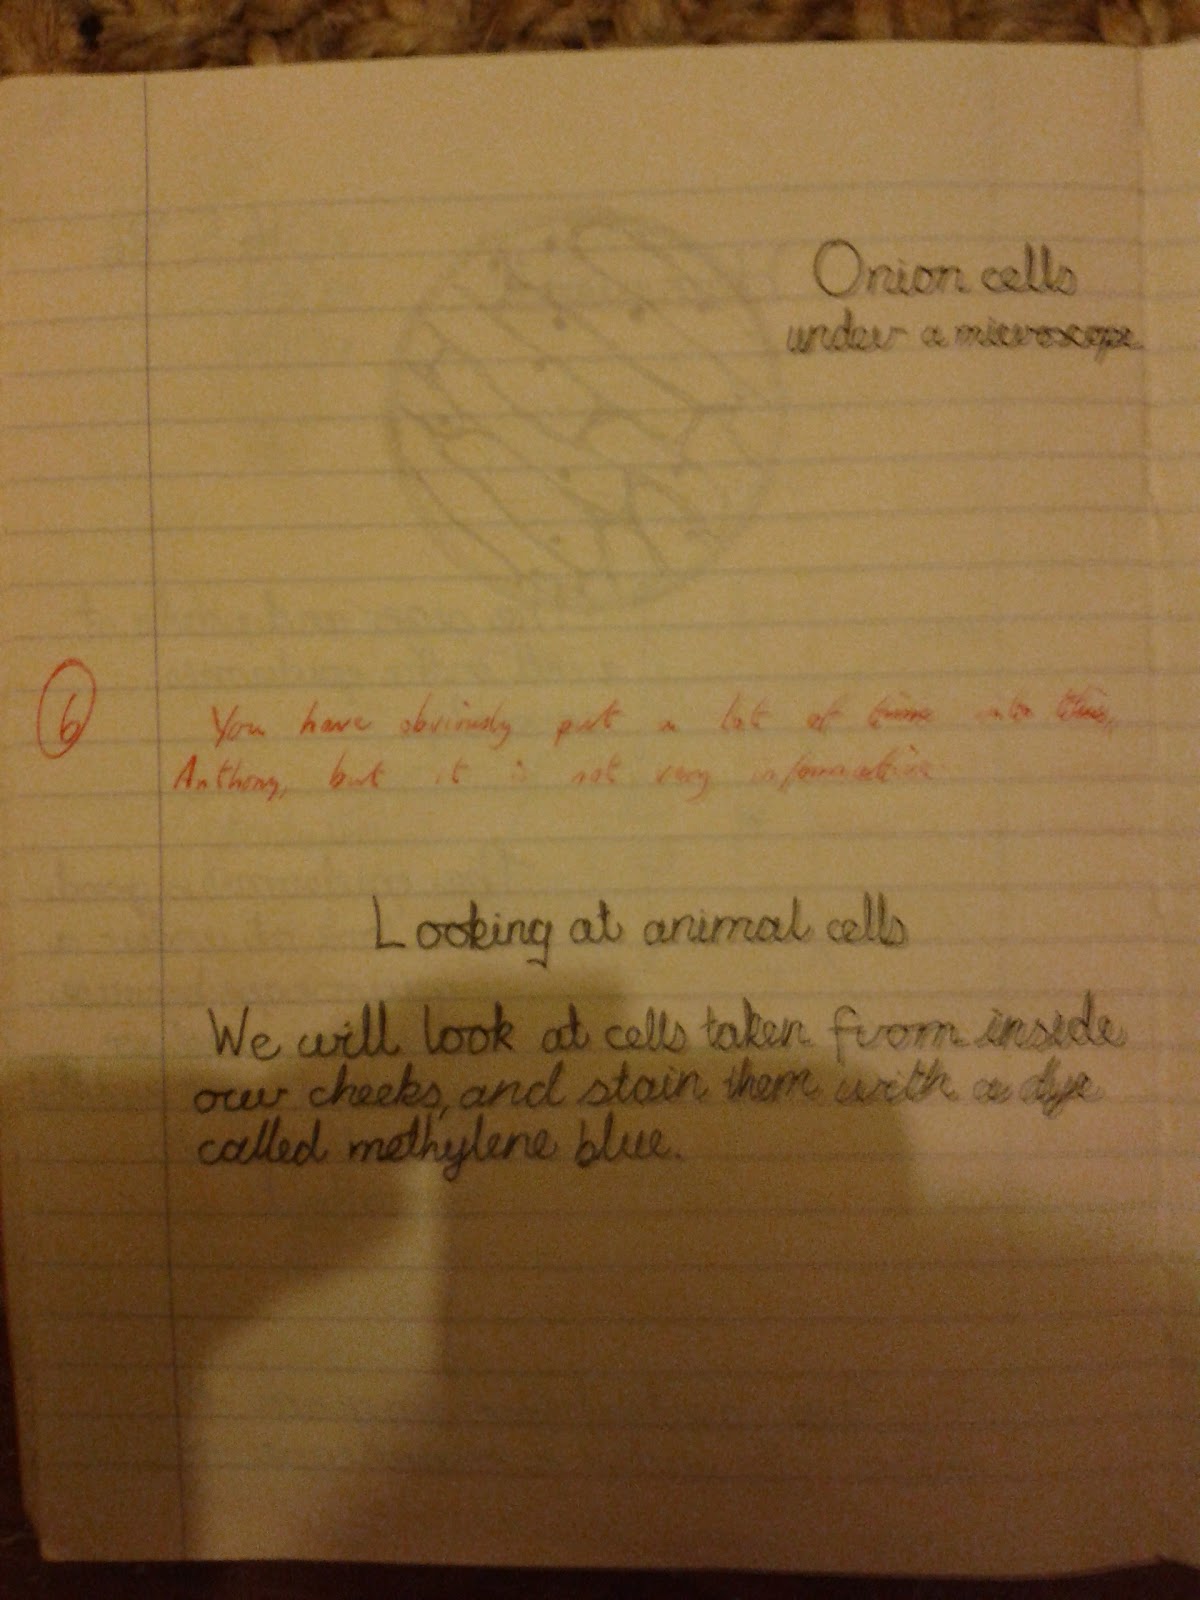 Onion cells
under a microscope
6
You have obviously put a lot of time into this,
Anthony, but it is not very informative
Looking at animal cells
We will look at cells taken from inside
our cheeks, and stain them with a dye
called methylene blue.